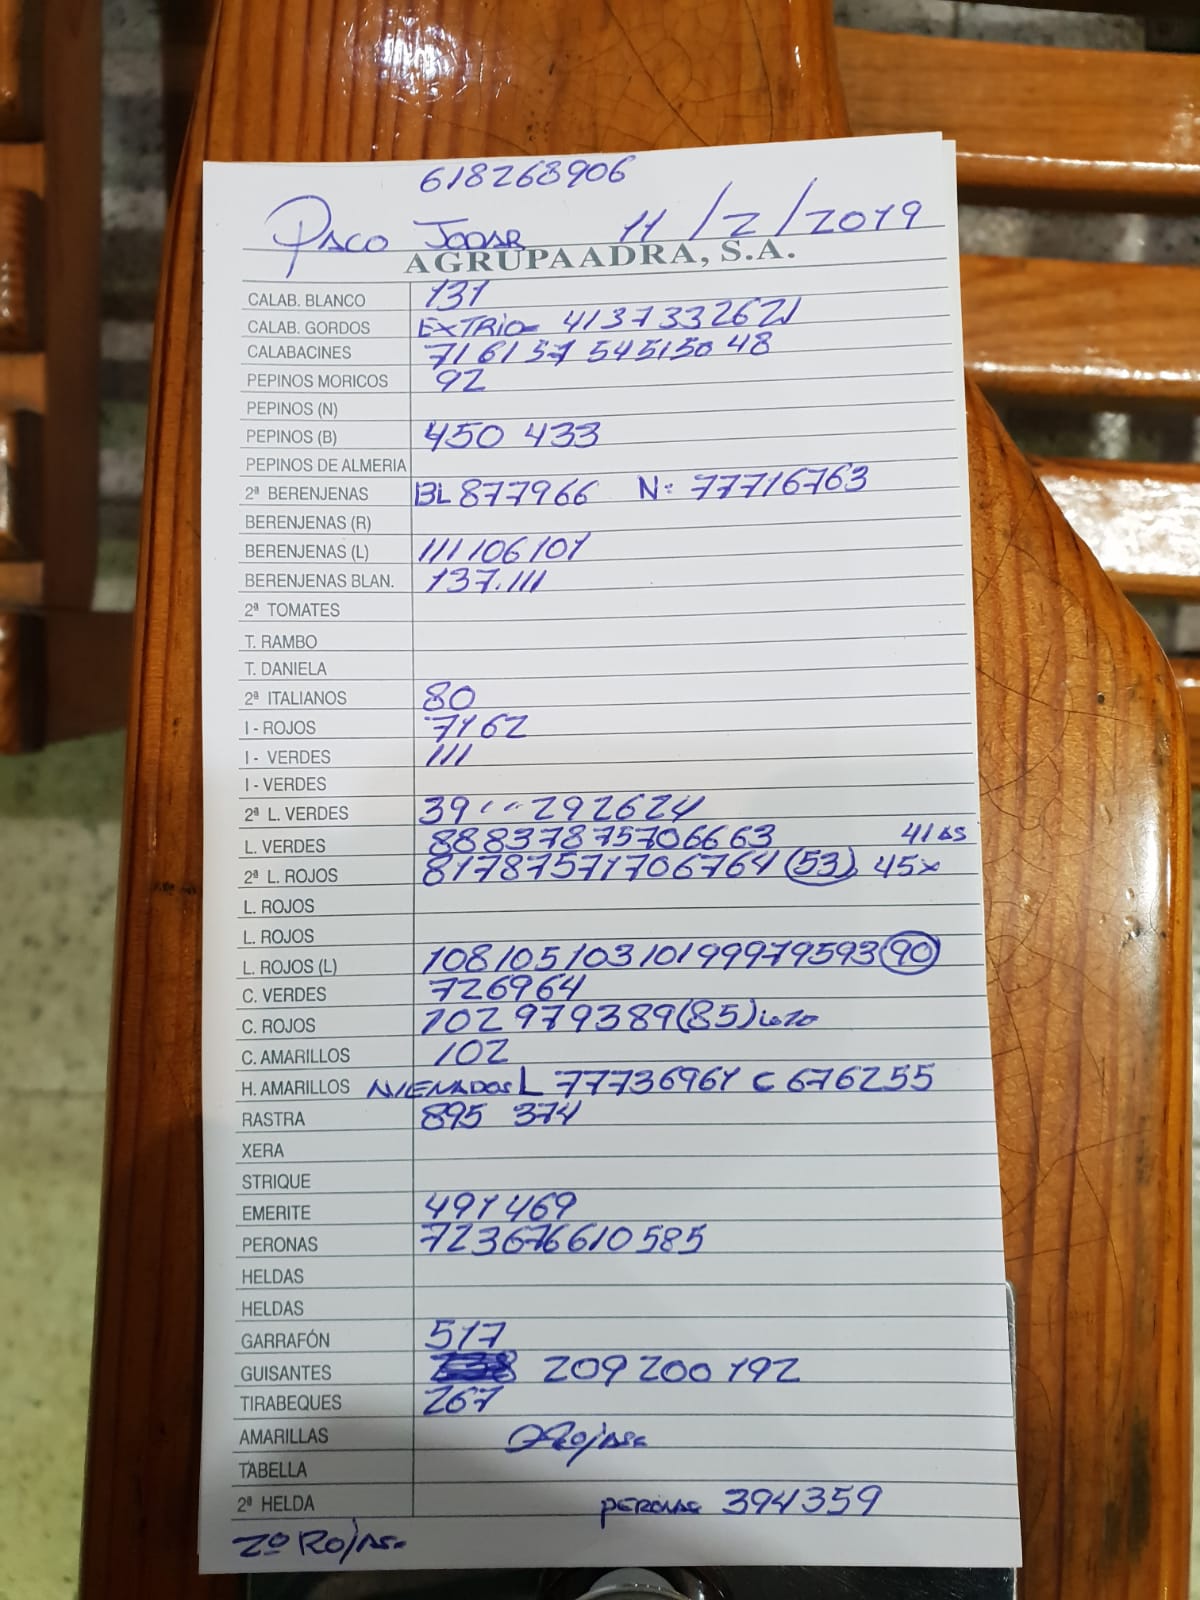 618268906
Paco Jodar 11/2/2019
AGRUPAADRA, S.A.
CALAB. BLANCO 131
CALAB. GORDOS EXTRIO 4137332621
CALABACINES 716157 54515048
PEPINOS MORICOS 92
PEPINOS (N)
PEPINOS (B) 450 433
PEPINOS DE ALMERIA
2ª BERENJENAS BL 877966 N: 77716763
BERENJENAS (R)
BERENJENAS (L) 111 106 101
BERENJENAS BLAN. 137.111
2ª TOMATES
T. RAMBO
T. DANIELA
2ª ITALIANOS 80
I - ROJOS 7162
I - VERDES 111
I - VERDES
2ª L. VERDES 39 292624
L. VERDES 88837875706663 41
2ª L. ROJOS 81787571706764 (53) 45x
L. ROJOS
L. ROJOS
L. ROJOS (L) 108105103101999799593 (90)
C. VERDES 726964
C. ROJOS 102 979389 (85)
C. AMARILLOS 102
H. AMARILLOS L 77736961 C 676255
RASTRA 895 374
XERA
STRIQUE
EMERITE 491 469
PERONAS 723676610585
HELDAS
HELDAS
GARRAFÓN 517
GUISANTES 209 200 192
TIRABEQUES 267
AMARILLAS Rojas
TABELLA
2ª HELDA peronas 394359
2º Rojas